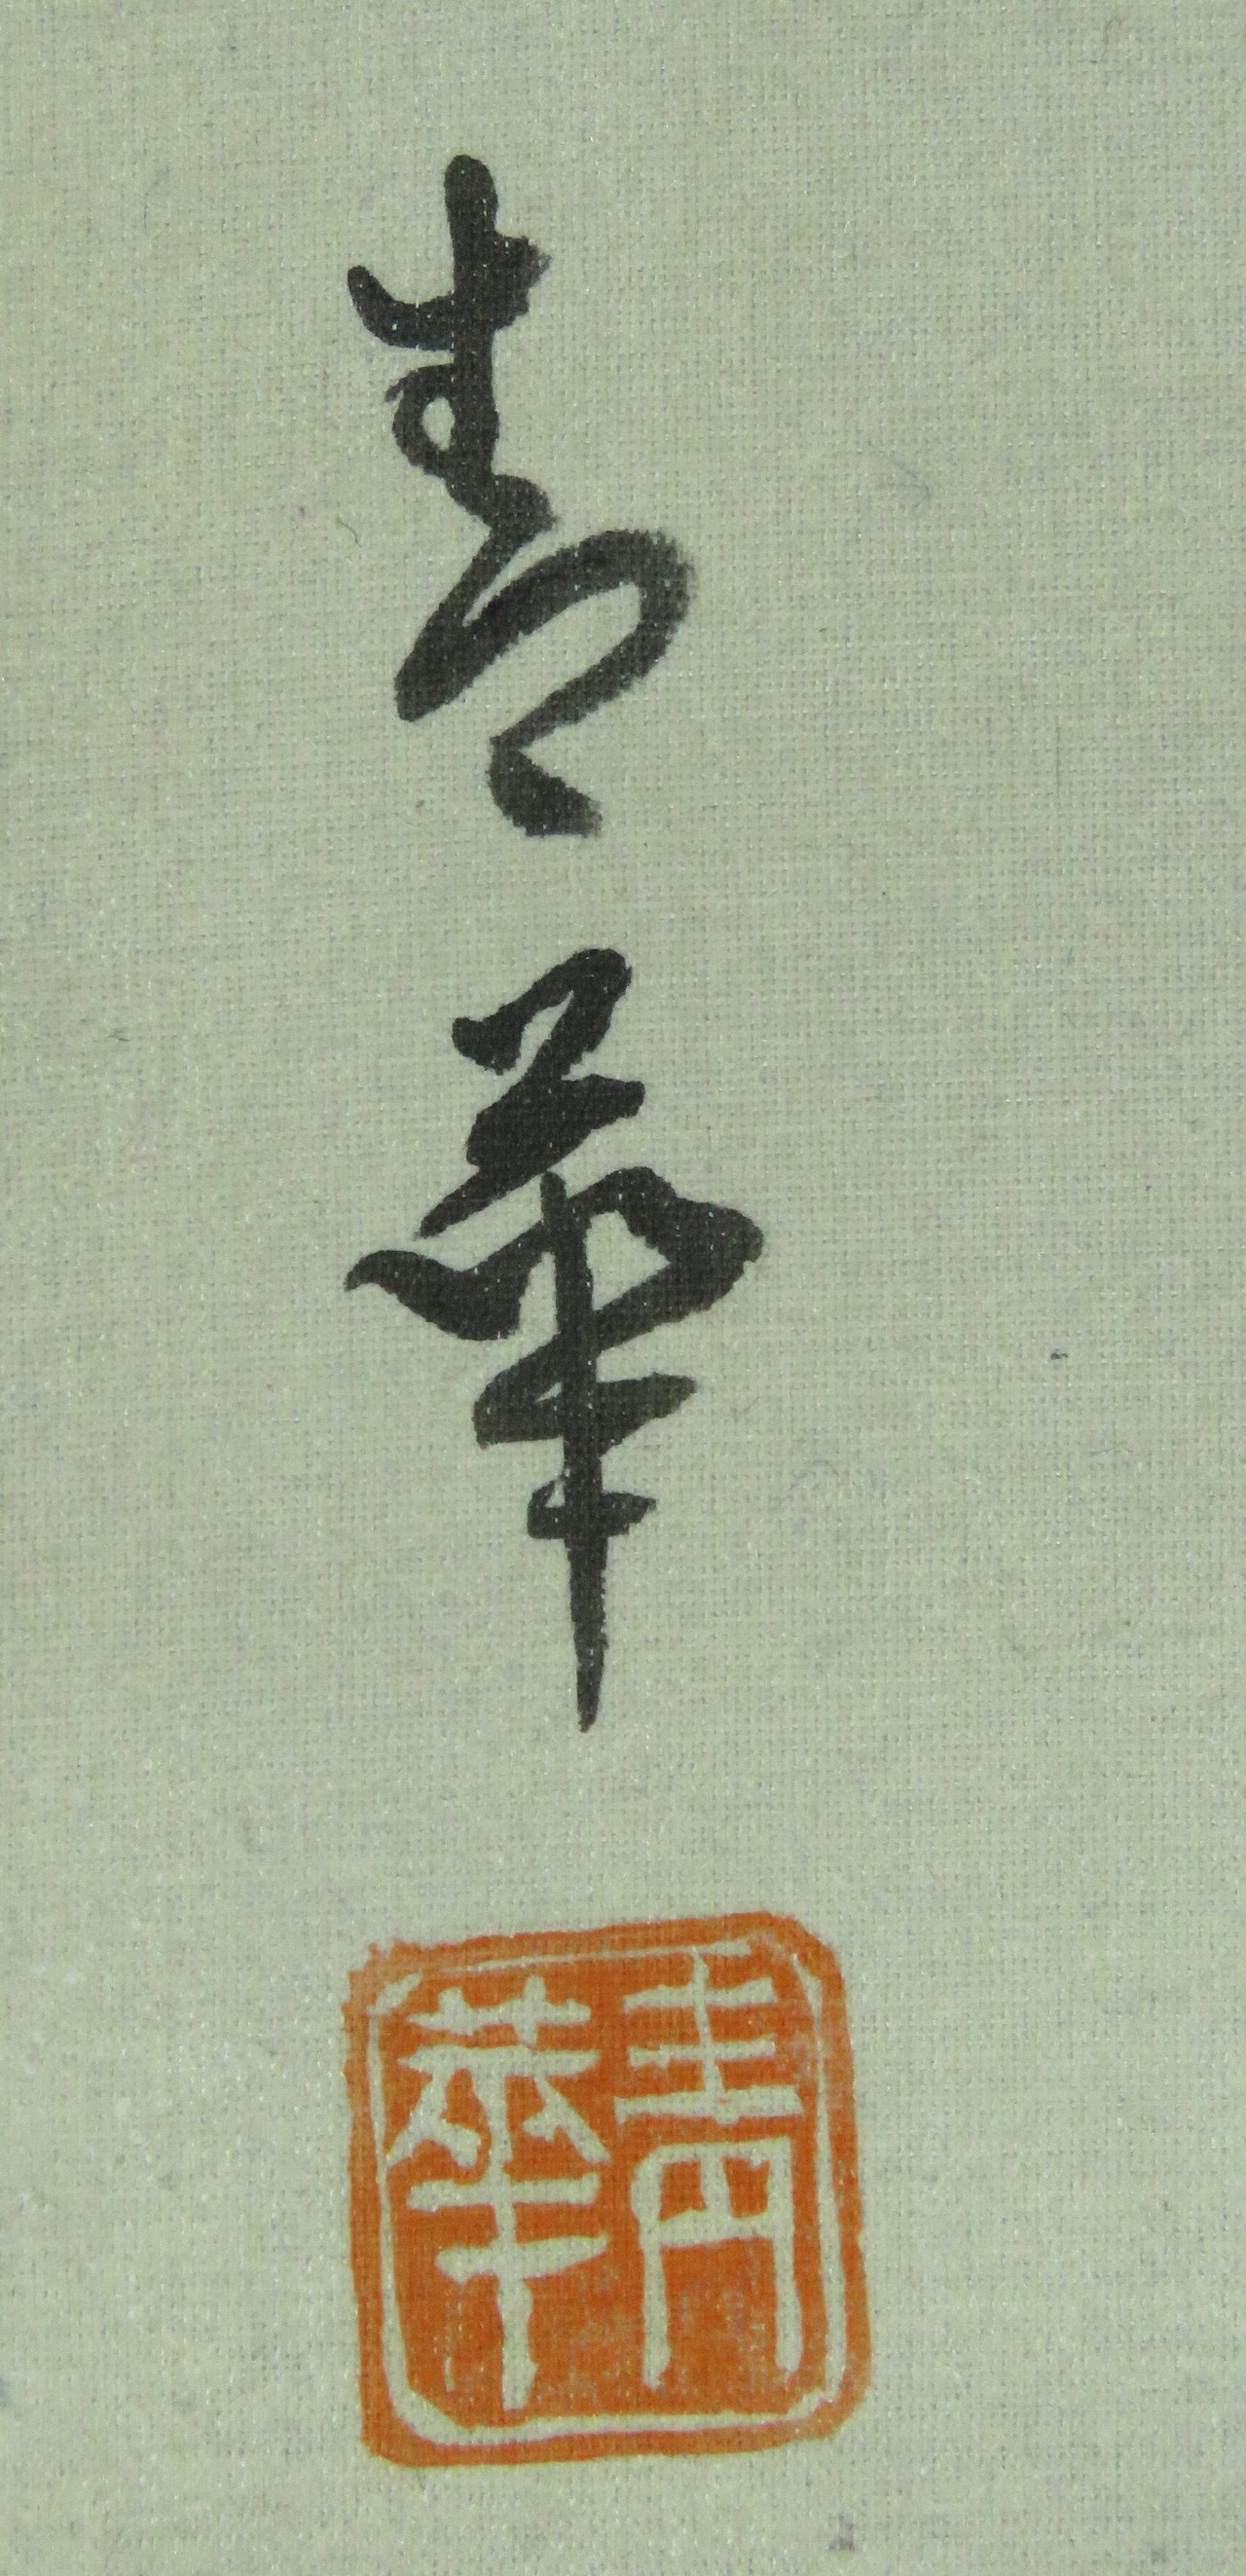 青華
青華